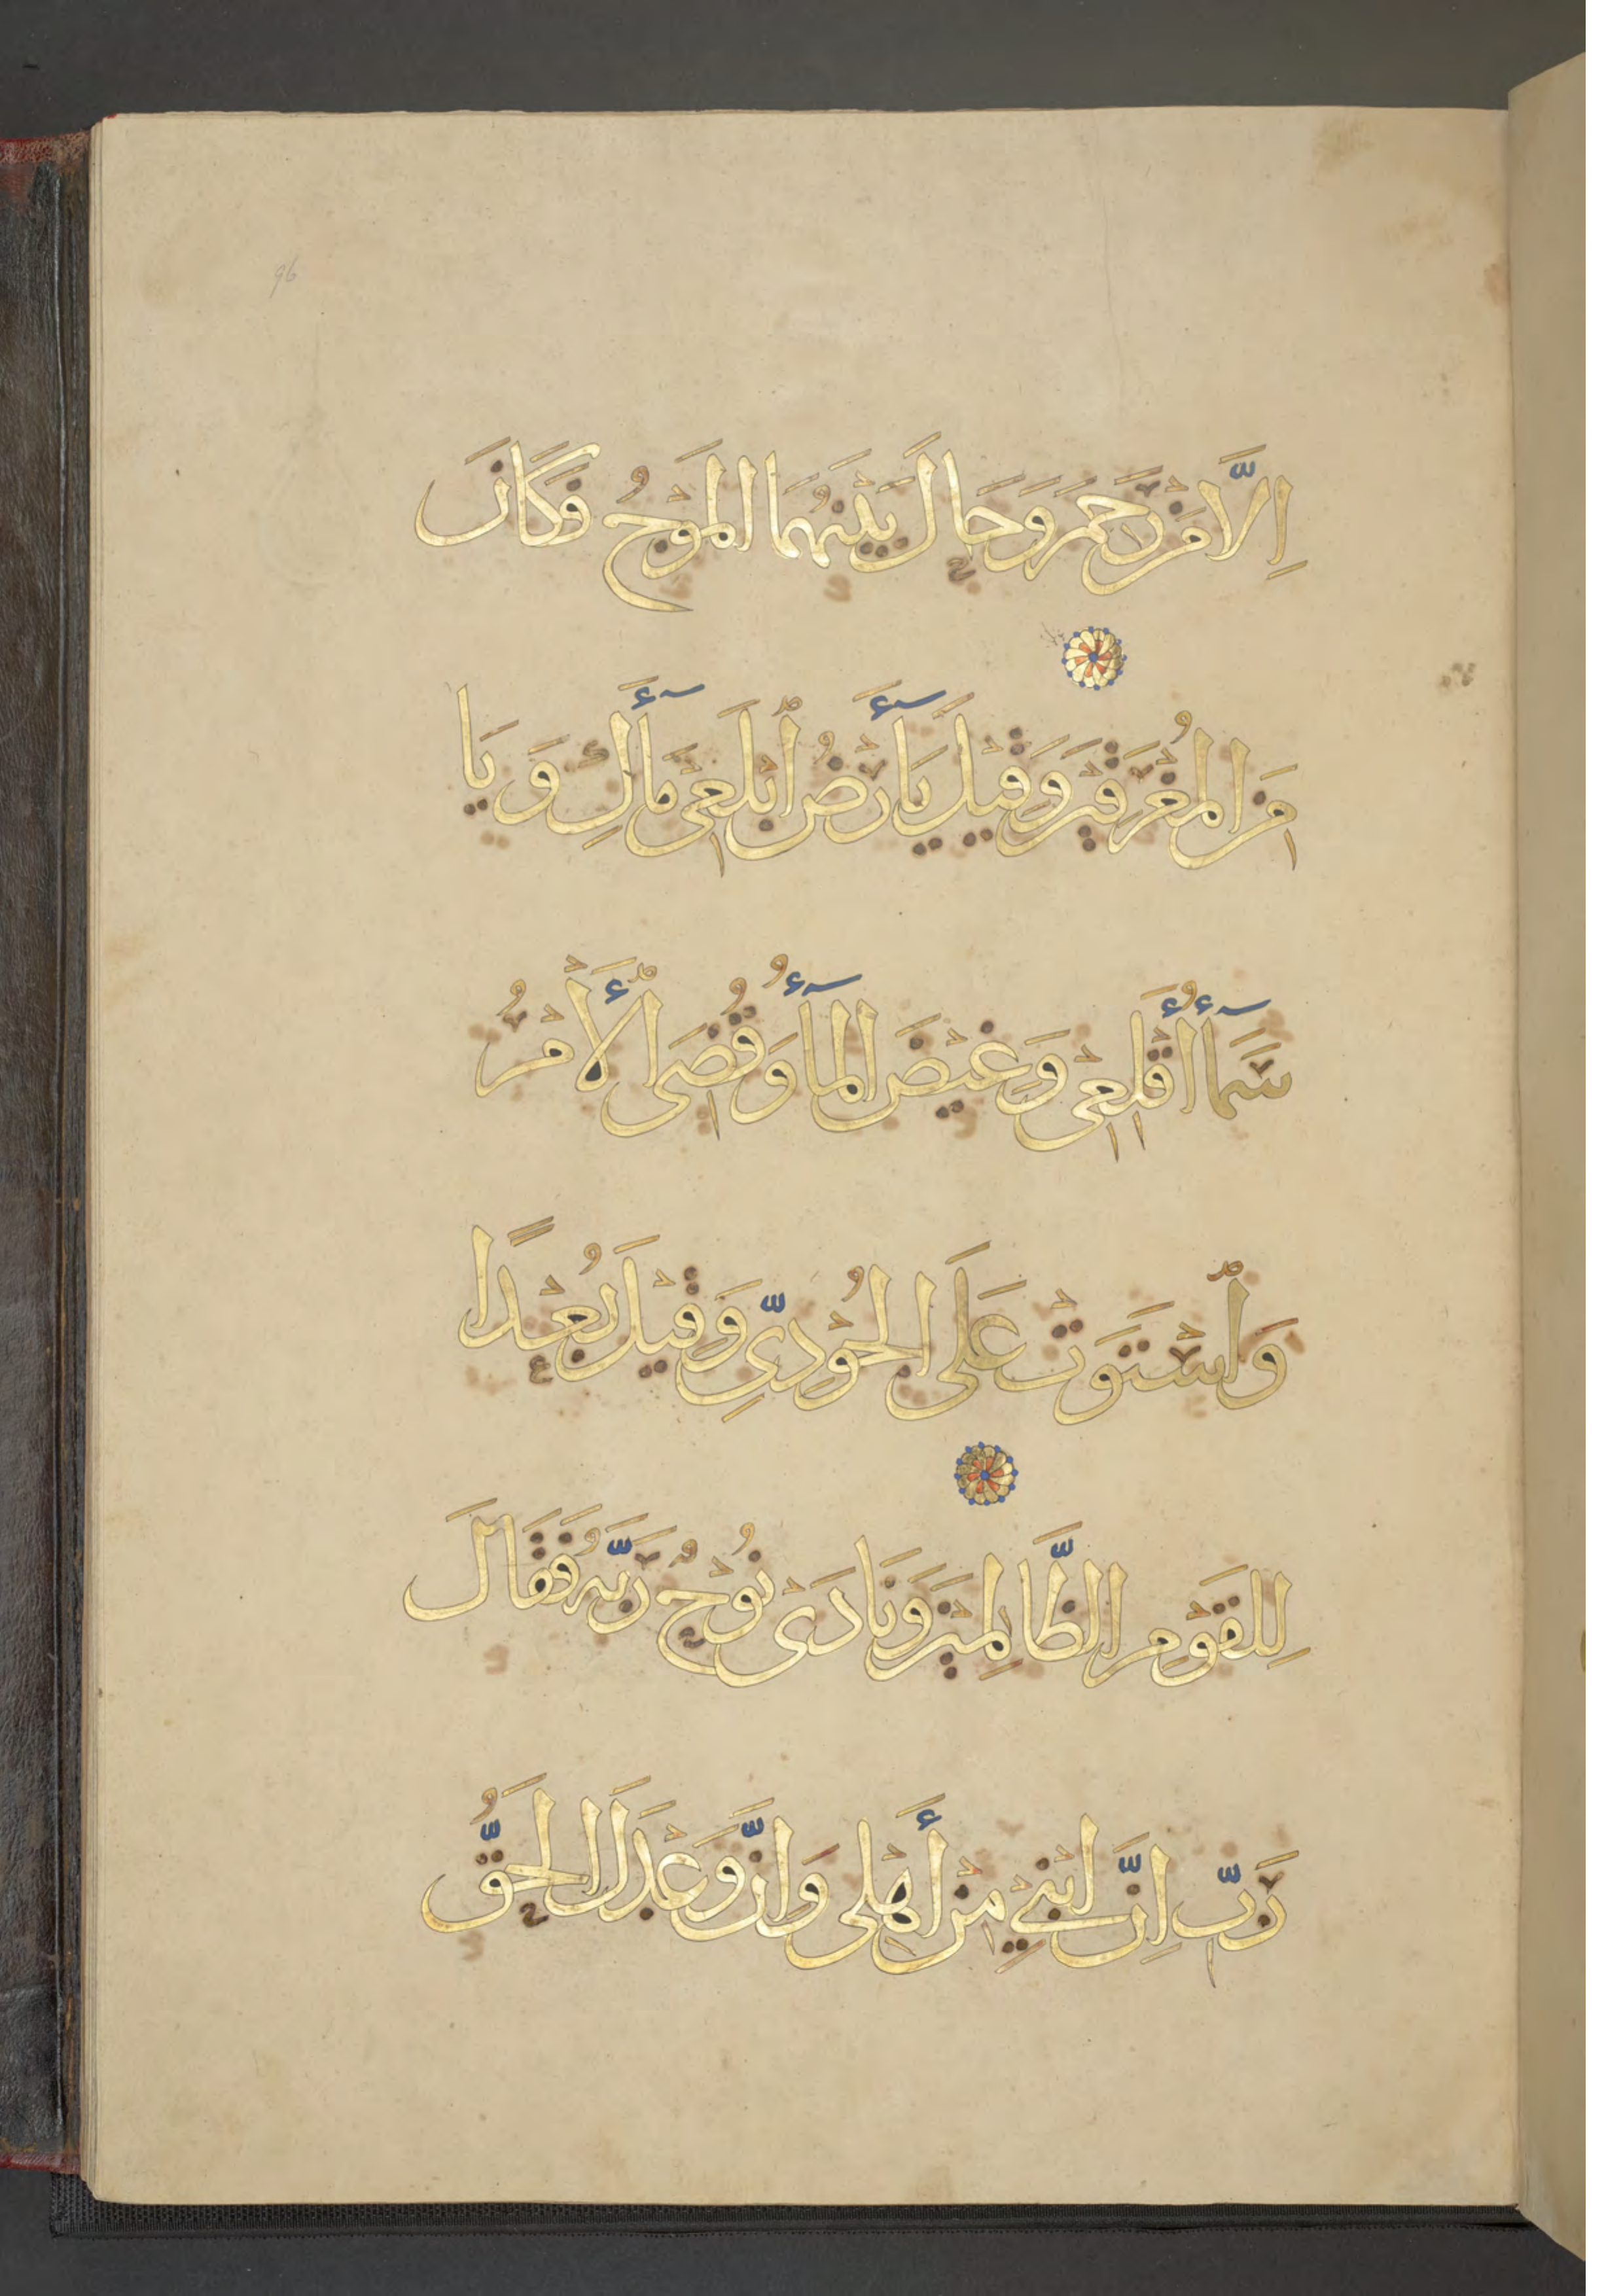 96
اِلَّا مَنْ رَحِمَ وَحَالَ بَيْنَهُمَا الْمَوْجُ فَكَانَ
مِنَ الْمُغْرَقِيْنَ وَقِيْلَ يَآأَرْضُ ٱبْلَعِيْ مَآأَكِ وَيَا
سَمَآأُ أَقْلِعِيْ وَغِيْضَ الْمَآأُ وَقُضِيَ ٱلْأَمْرُ
وَٱسْتَوَتْ عَلَى الْجُوْدِيِّ وَقِيْلَ بُعْدًا
لِلْقَوْمِ الظَّالِمِيْنَ وَنَادَىْ نُوْحٌ رَبَّهُ فَقَالَ
رَبِّ اِنَّ ابْنِيْ مِنْ أَهْلِيْ وَاِنَّ وَعْدَكَ الْحَقُّ